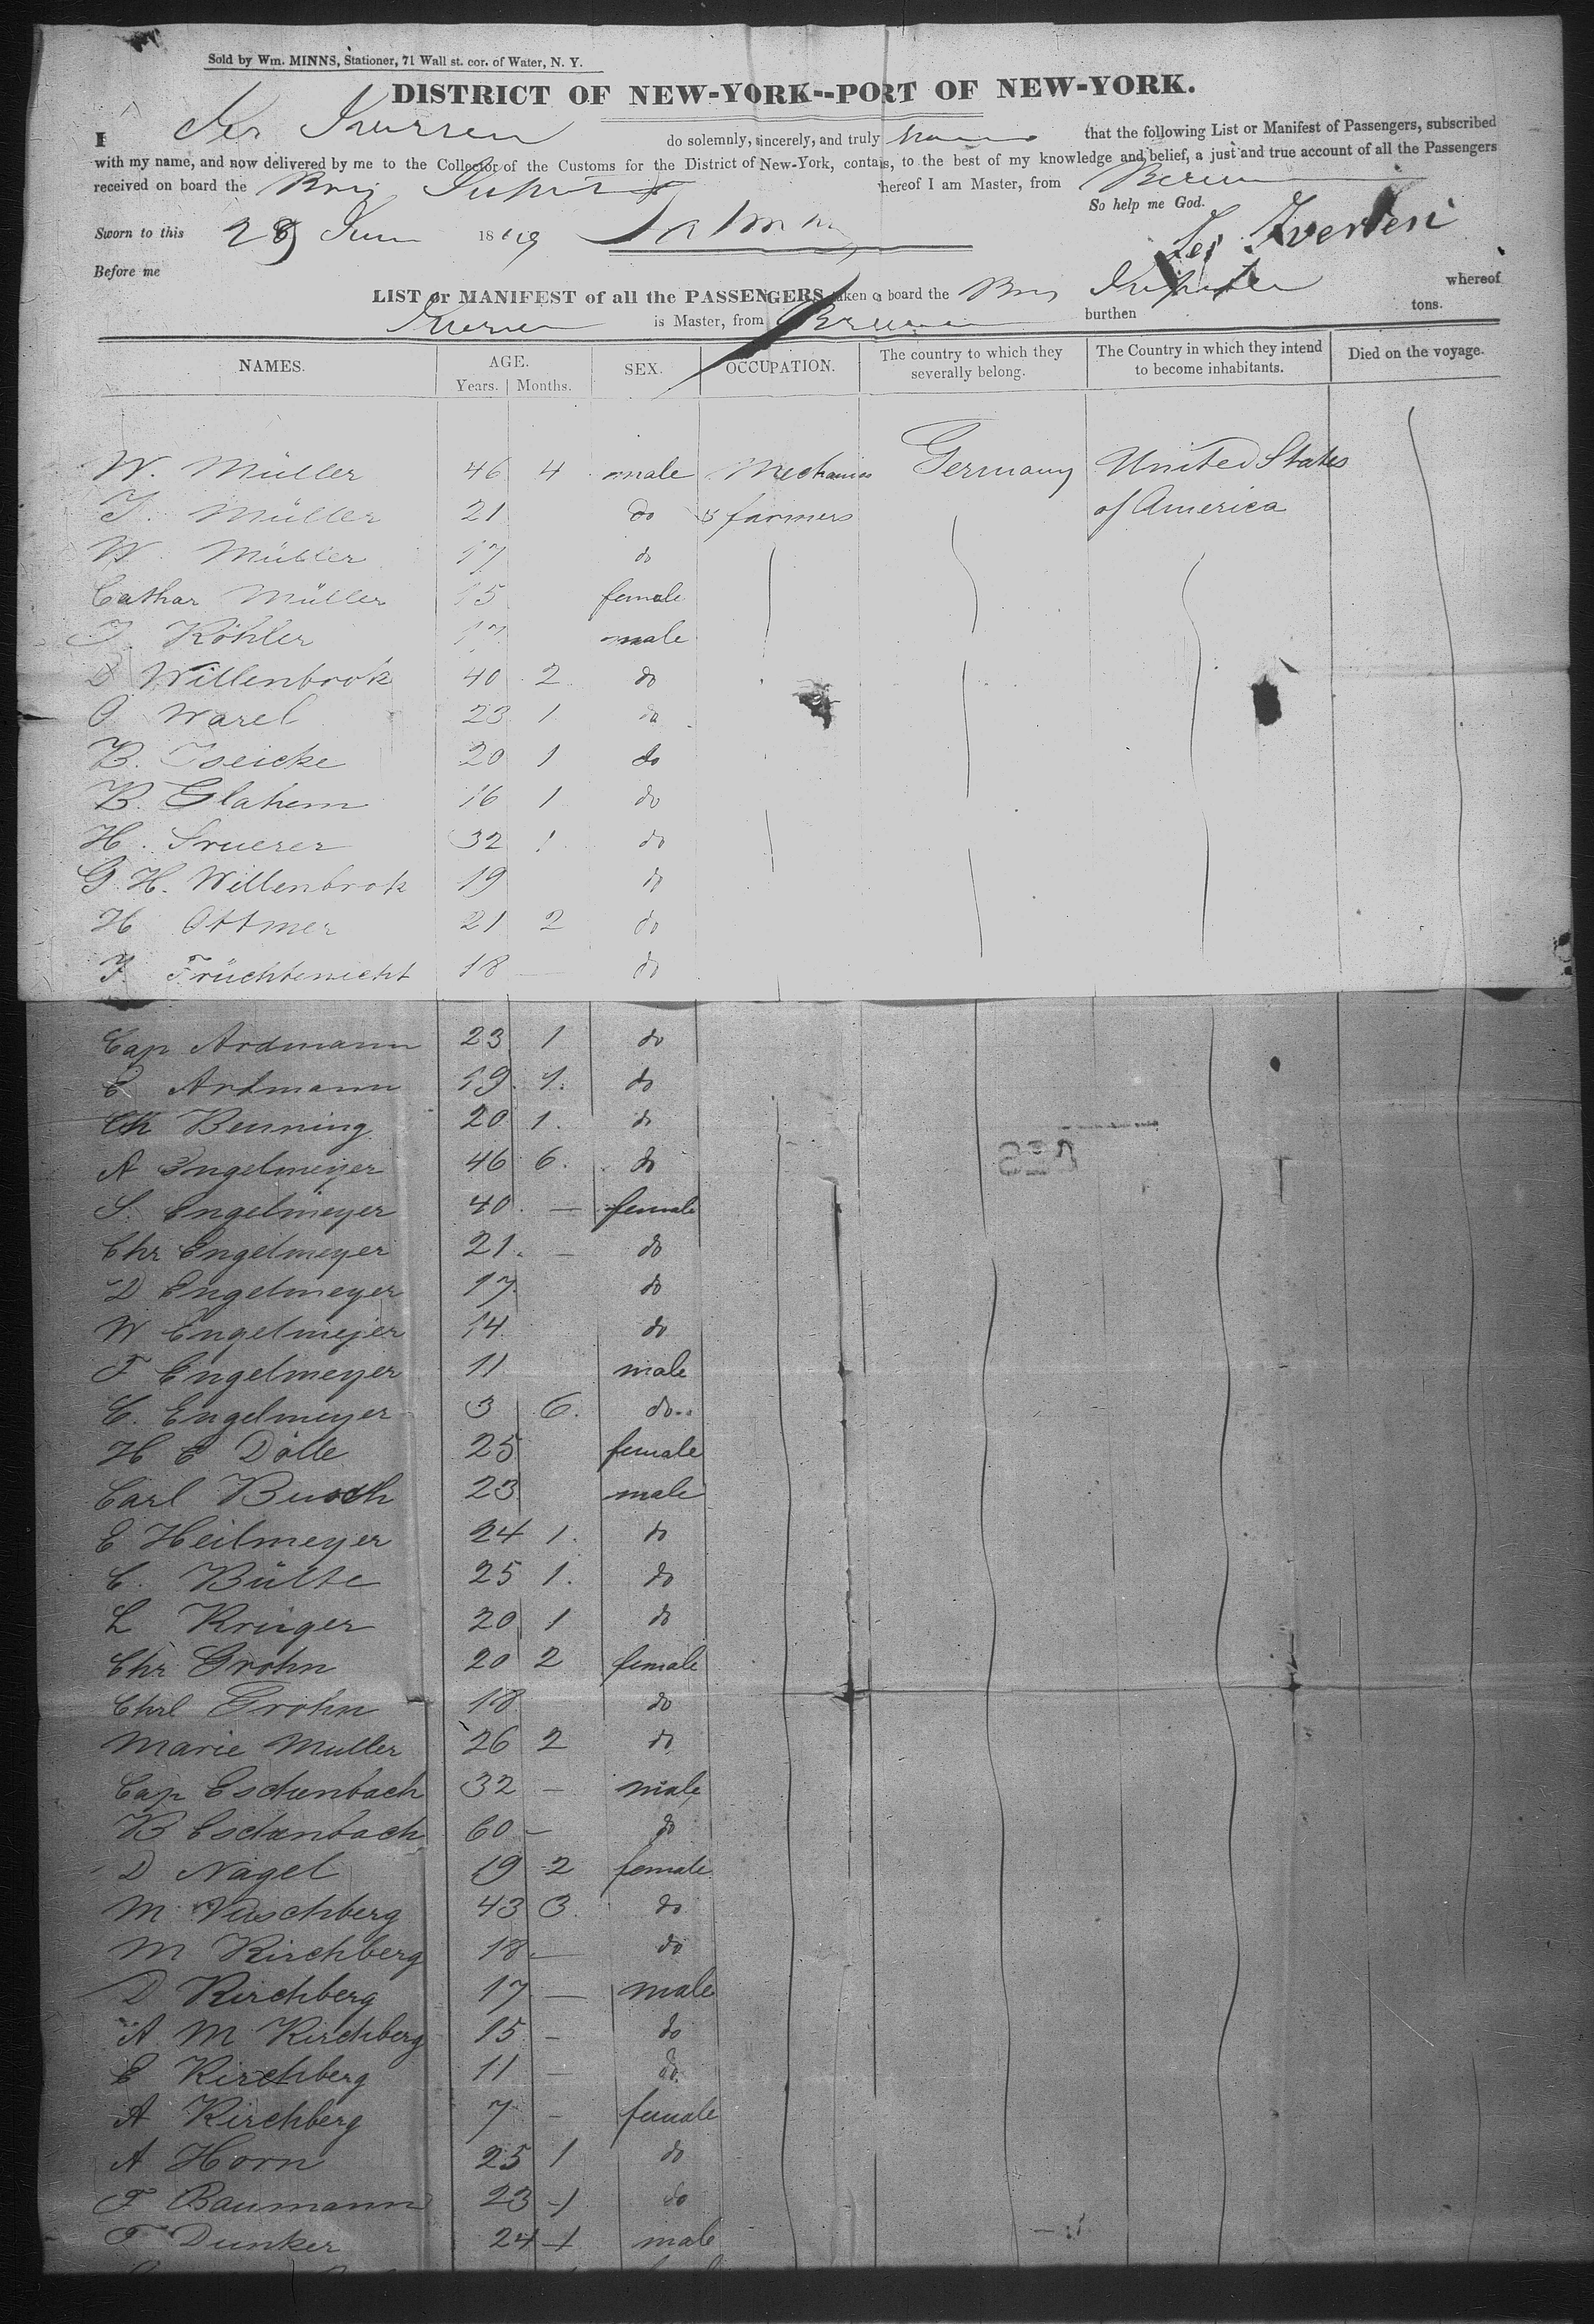 Sold by Wm. MINNS, Stationer, 71 Wall st. cor. of Water, N. Y.
DISTRICT OF NEW-YORK--PORT OF NEW-YORK.
I do solemnly, sincerely, and truly that the following List or Manifest of Passengers, subscribed
with my name, and now delivered by me to the Collector of the Customs for the District of New-York, contais, to the best of my knowledge and belief, a just and true account of all the Passengers
received on board the Brig hereof I am Master, from
So help me God.
Sworn to this 28 18
Iversen
Before me
LIST or MANIFEST of all the PASSENGERS taken on board the Brig whereof
is Master, from Bremen burthen tons.
NAMES. AGE. SEX. OCCUPATION. The country to which they severally belong. The Country in which they intend to become inhabitants. Died on the voyage.
Years. Months.
W. Müller 46 4 male Mechanics Germany United States
J. Müller 21 do farmers of America
W. Müller 17 do
Cathar Müller 15 female
J. Köhler 17 male
D Willenbrok 40 2 do
O Warel 23 1 do
B. 20 1 do
B. Glahem 16 1 do
H. 32 1 do
G. H. Willenbrok 19 do
H Ottmer 21 2 do
J. Früchtenicht 18 — do
Cap Ardmann 23 1 do
C Artmann 19 1. do
Ch Benning 20 1. do
A Engelmeyer 46 6. do
S. Engelmeyer 40. — female
Chr Engelmeyer 21. — do
D Engelmeyer 17. do
W Engelmeyer 14. do
F Engelmeyer 11 male
C. Engelmeyer 3 6. do
H C Dölle 25 female
Carl Busch 23 male
E Heilmeyer 24 1. do
C. Bülte 25 1. do
L Krüger 20 1 do
Chr Grohn 20 2 female
Chrl Grohn 18 do
Marie Muller 26 2 do
Cap Eschenbach 32 — male
B Eschenbach 60 — do
D Nagel 19 2 female
M 43 3. do
M Kirchberg 18. — do
D Kirchberg 17 — male
A M Kirchberg 15 — do
E Kirchberg 11 — do
A Kirchberg 7 — female
A Horn 25 1 do
F Baumann 23 1 do
F Dunker 24 1 male